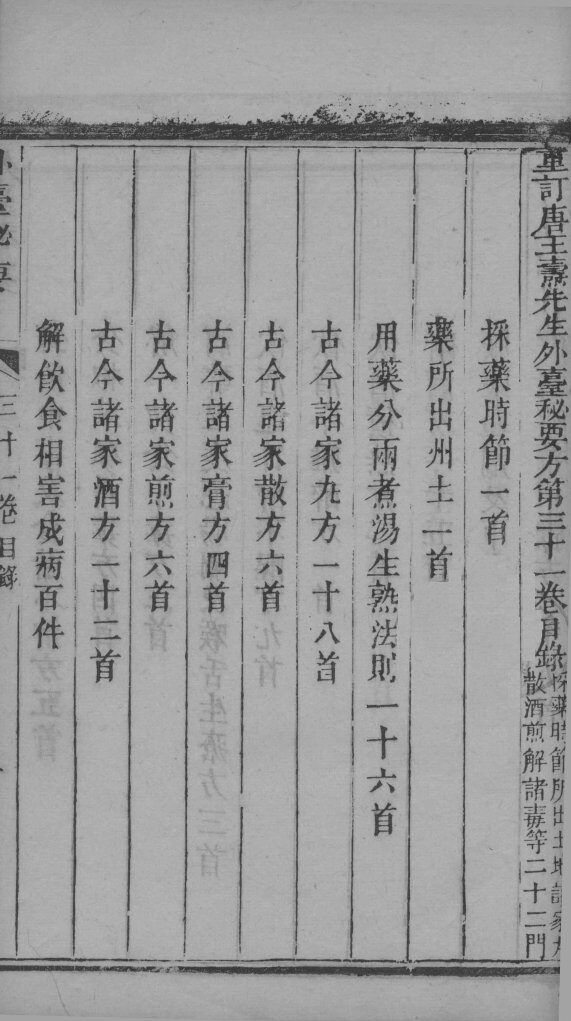 重訂唐王燾先生外臺秘要方第三十一卷目錄
採藥時節所出土地諸家丸
散酒煎解諸毒等二十二門
採藥時節一首
藥所出州土一首
用藥分兩煮湯生熟法則一十六首
古今諸家丸方一十八首
古今諸家散方六首
古今諸家膏方四首
古今諸家煎方六首
古今諸家酒方一十二首
解飲食相害成病百件
外臺秘要
三十一卷目錄